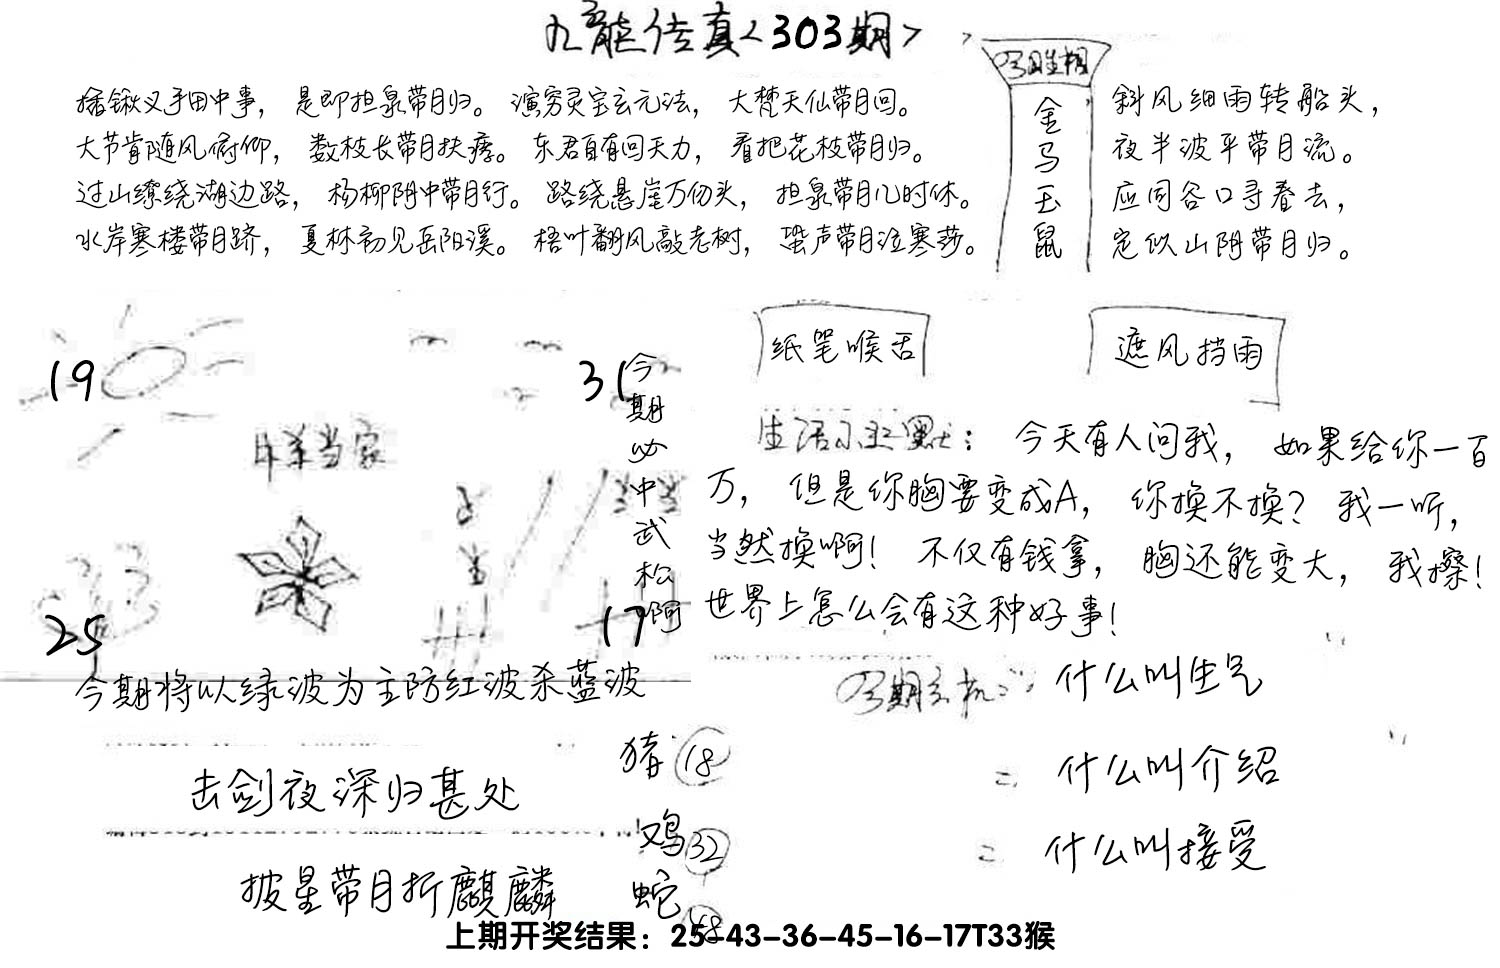 九龙传真<303期>
插锹叉手田中事，是即担泉带月归。演穷灵宝玄元法，大梵天仙带月回。
大节肯随风俯仰，数枝长带月扶疏。东君自有回天力，看把花枝带月归。
过山缭绕湖边路，杨柳阴中带月行。路绕悬崖万仞头，担泉带月几时休。
水岸寒楼带月跻，夏林初见岳阳溪。梧叶翻风敲老树，蛩声带月泣寒莎。
金马玉鼠
斜风细雨转船头，
夜半波平带月流。
应同谷口寻春去，
定似山阴带月归。
纸笔喉舌
遮风挡雨
19
31
今期必中武松啊
当家
25
17
生活幽默：今天有人问我，如果给你一百
万，但是你胸要变成A，你换不换？我一听，
当然换啊！不仅有钱拿，胸还能变大，我擦！
世界上怎么会有这种好事！
今期将以绿波为主防红波杀蓝波
今期玄机：什么叫生气
什么叫介绍
什么叫接受
击剑夜深归甚处
披星带月折麒麟
猪18
鸡32
蛇
上期开奖结果：25-43-36-45-16-17T33猴